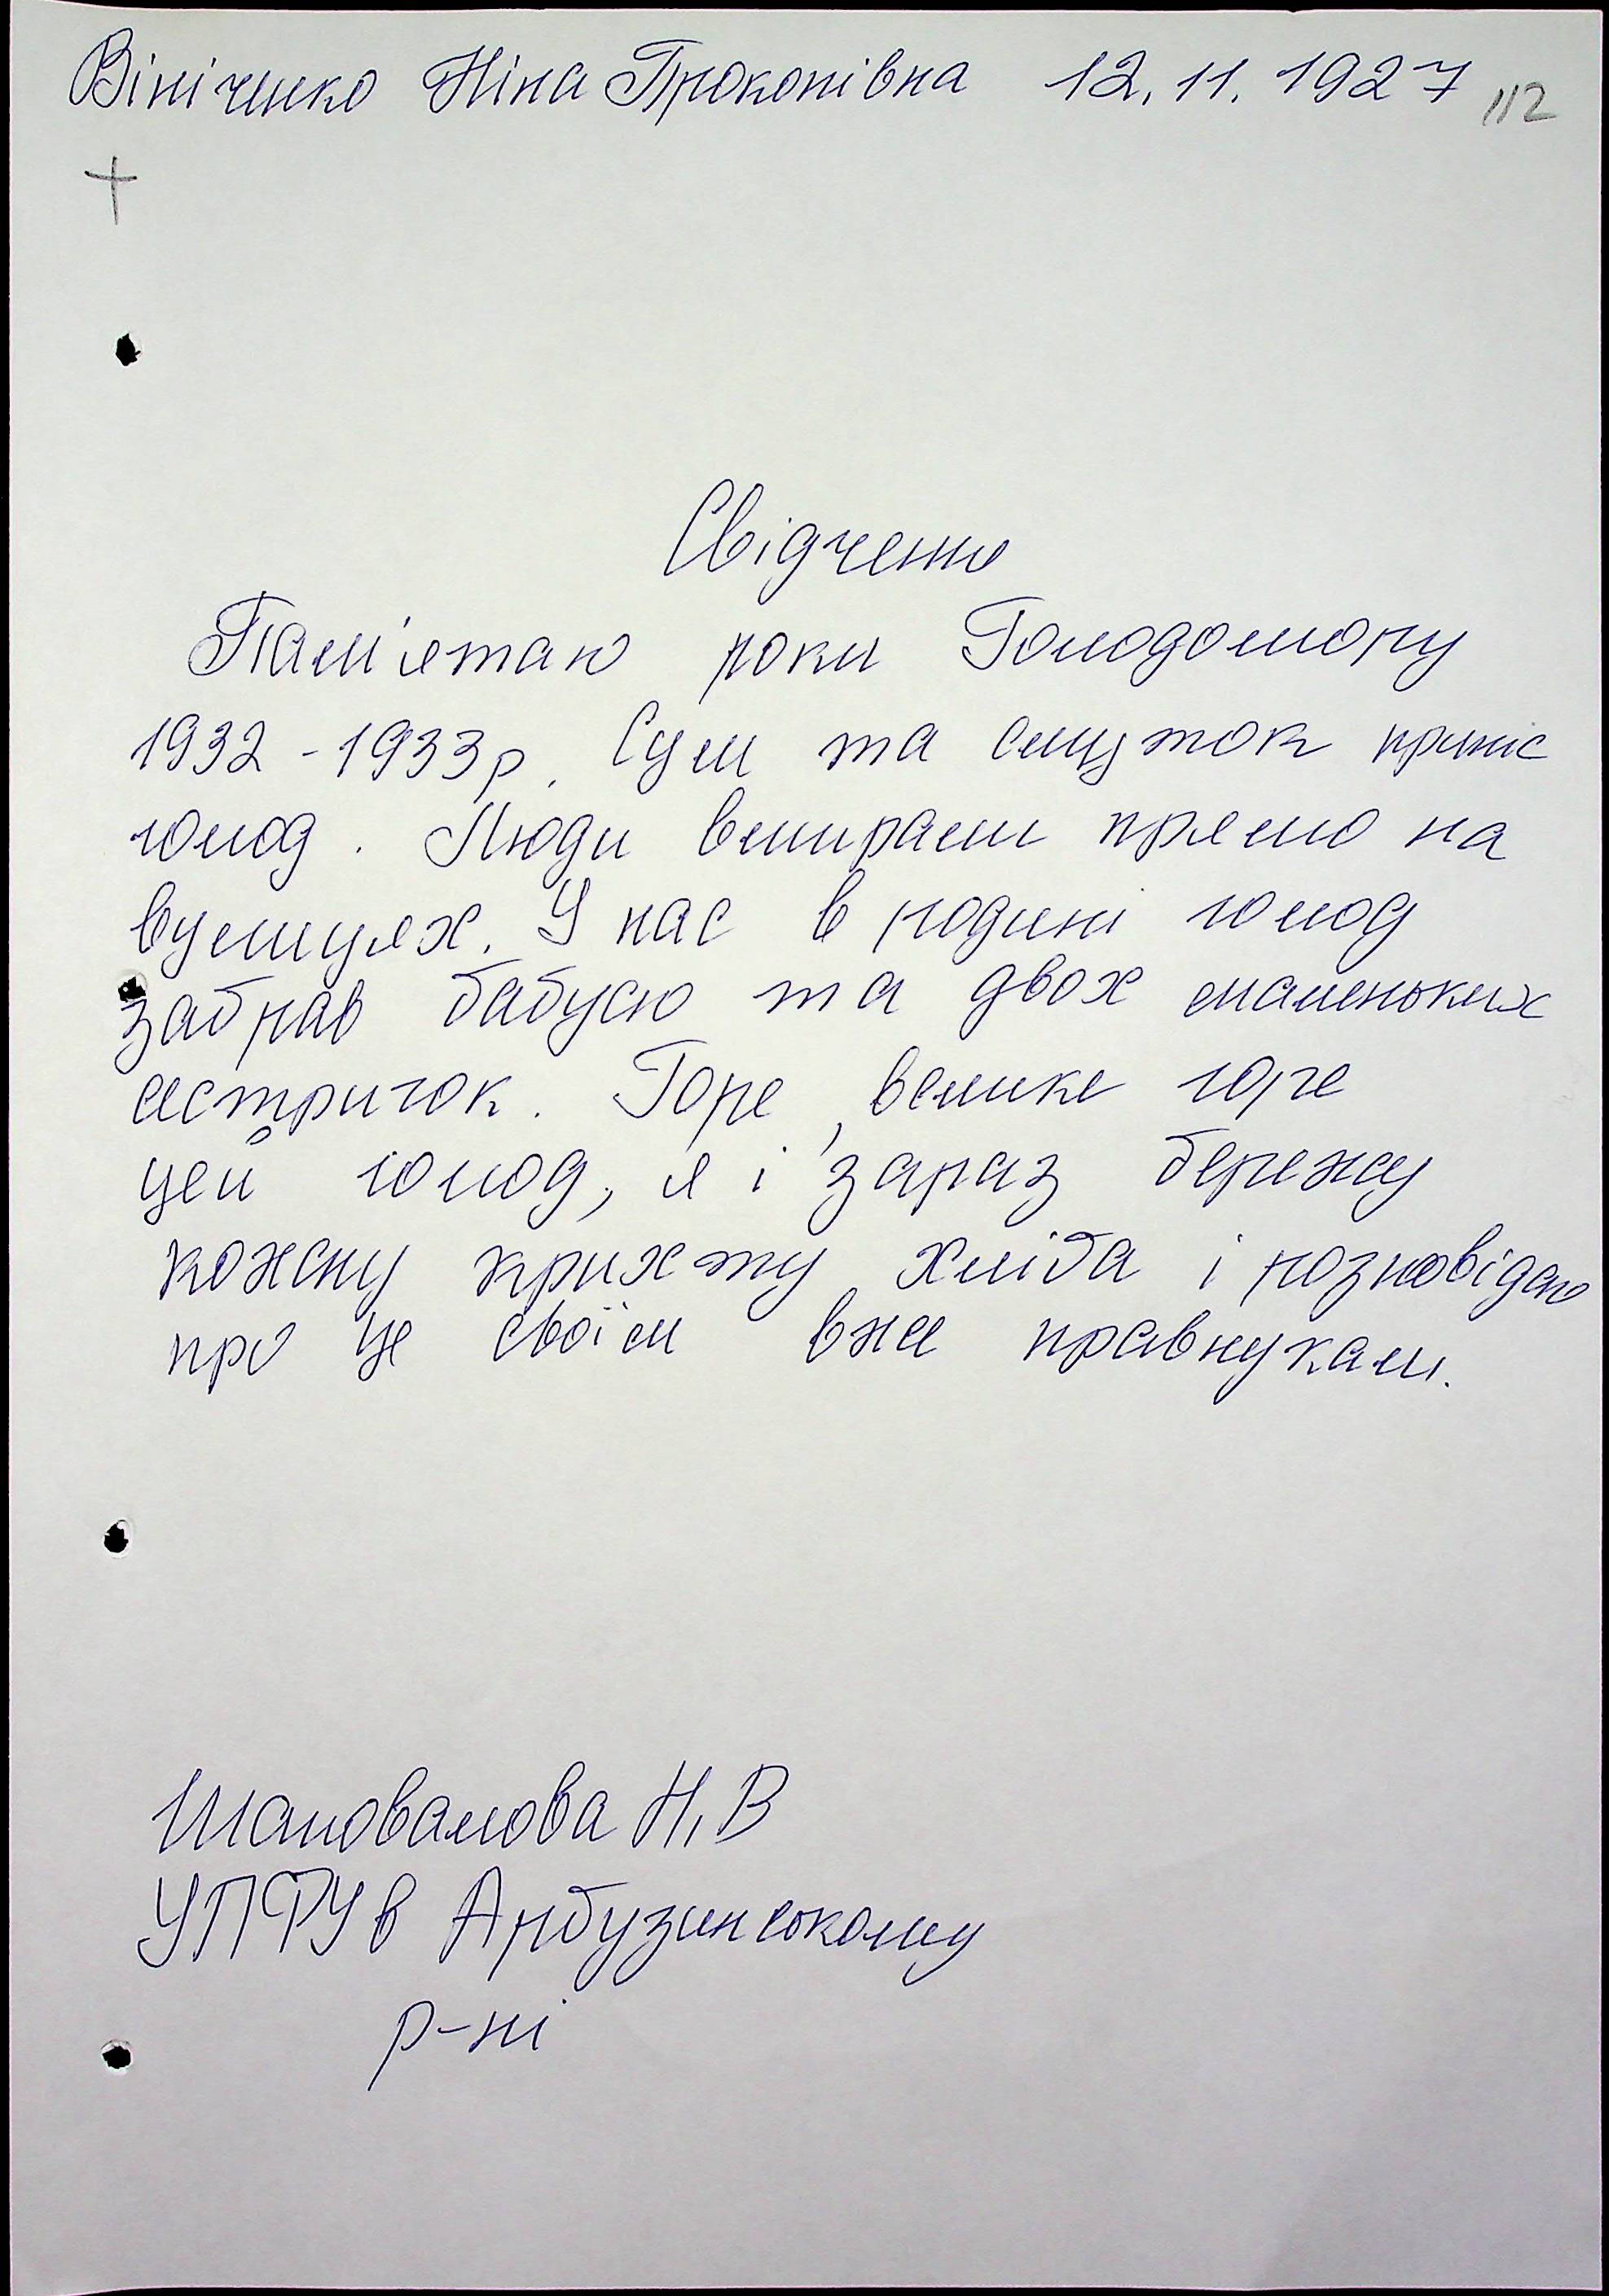 Вініченко Ніна Прокопівна 12.11.1927 112
Свідчення
Пам'ятаю роки Голодомору
1932-1933р. Сум та смуток приніс
голод. Люди вмирали прямо на
вулицях. У нас в родині голод
забрав бабусю та двох маленьких
сестричок. Горе, велике горе
цей голод, я і зараз бережу
кожну крихту хліба і розповідаю
про це своїм вже правнукам.
Шаповалова Н.В
УПФУ в Арбузинському
р-ні